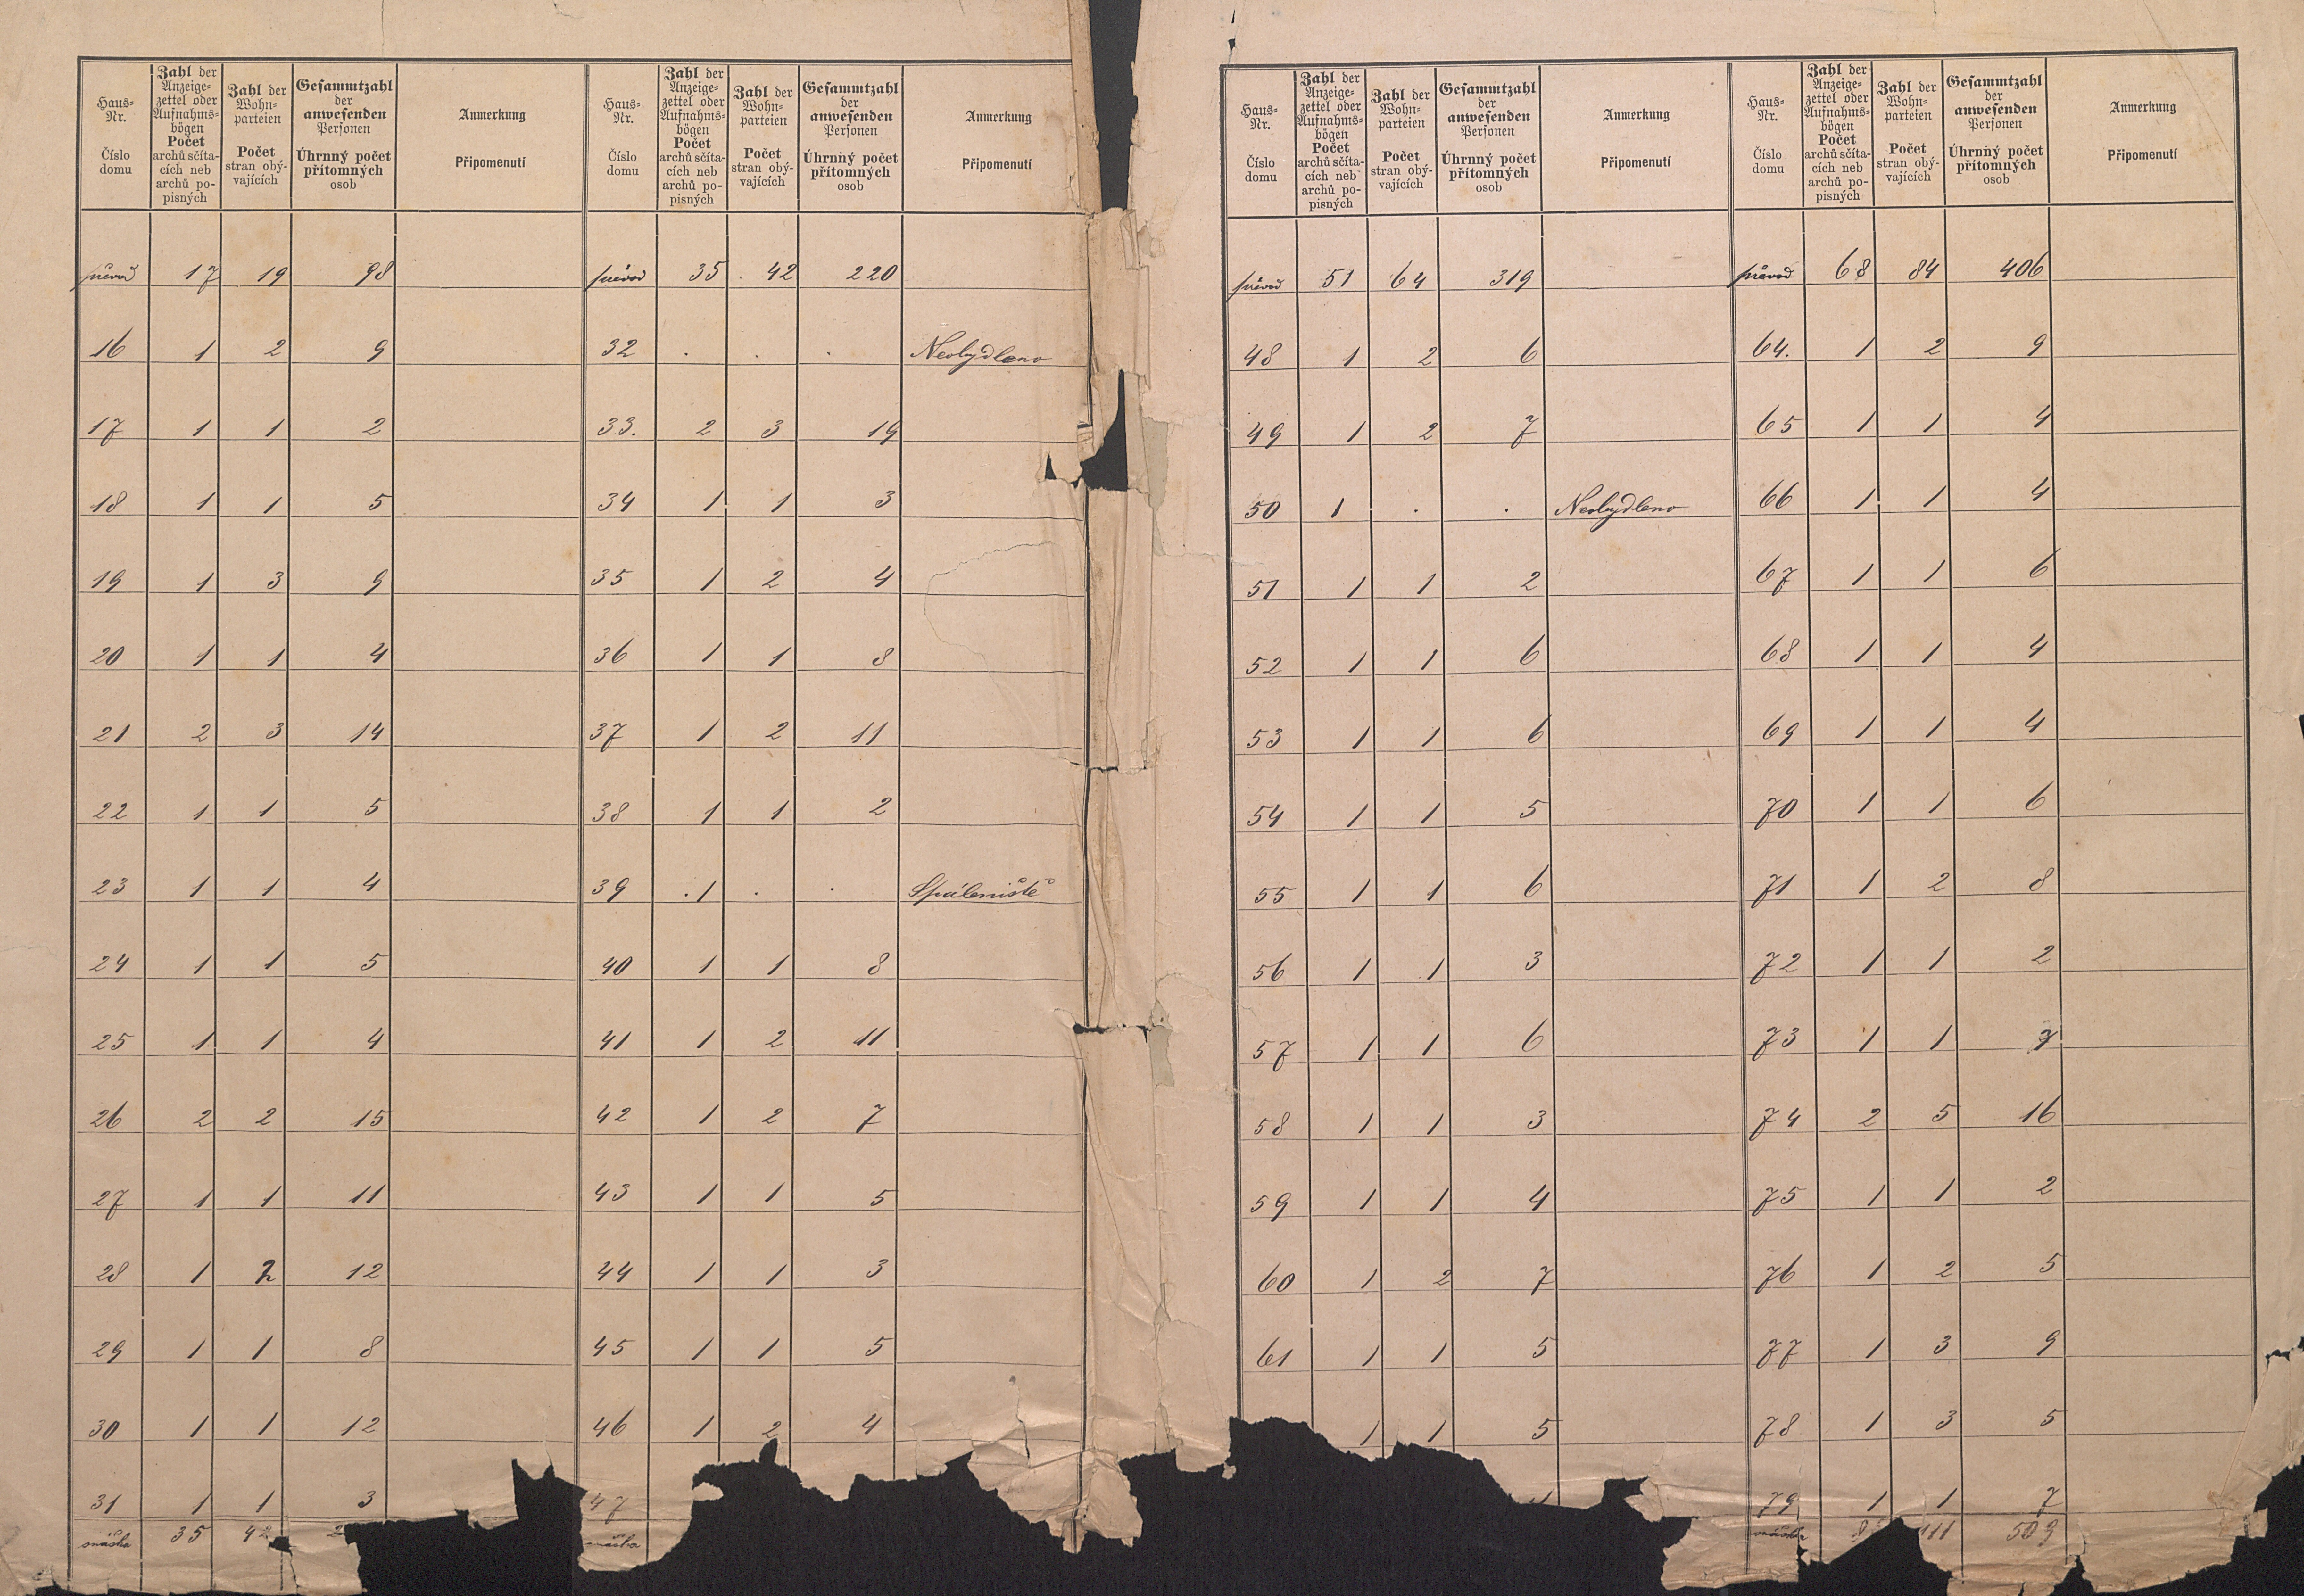 Haus-Nr. Číslo domu | Zahl der Anzeige-zettel oder Aufnahms-bögen Počet archů sčíta-cích neb archů po-pisných | Zahl der Wohn-parteien Počet stran obý-vajících | Gesammtzahl der anwesenden Personen Úhrnný počet přítomných osob | Anmerkung Připomenutí
převod 17 19 98
16 1 2 9
17 1 1 2
18 1 1 5
19 1 3 9
20 1 1 4
21 2 3 14
22 1 1 5
23 1 1 4
24 1 1 5
25 1 1 4
26 2 2 15
27 1 1 11
28 1 2 12
29 1 1 8
30 1 1 12
31 1 1 3
snáška 35 42
Haus-Nr. Číslo domu | Zahl der Anzeige-zettel oder Aufnahms-bögen Počet archů sčíta-cích neb archů po-pisných | Zahl der Wohn-parteien Počet stran obý-vajících | Gesammtzahl der anwesenden Personen Úhrnný počet přítomných osob | Anmerkung Připomenutí
převod 35 42 220
32 . . . Neobydleno
33. 2 3 19
34 1 1 3
35 1 2 4
36 1 1 8
37 1 2 11
38 1 1 2
39 . 1 . . Spáleniště
40 1 1 8
41 1 2 11
42 1 2 7
43 1 1 5
44 1 1 3
45 1 1 5
46 1 2 4
47
snáška
Haus-Nr. Číslo domu | Zahl der Anzeige-zettel oder Aufnahms-bögen Počet archů sčíta-cích neb archů po-pisných | Zahl der Wohn-parteien Počet stran obý-vajících | Gesammtzahl der anwesenden Personen Úhrnný počet přítomných osob | Anmerkung Připomenutí
převod 51 64 319
48 1 2 6
49 1 2 7
50 1 . . Neobydleno
51 1 1 2
52 1 1 6
53 1 1 6
54 1 1 5
55 1 1 6
56 1 1 3
57 1 1 6
58 1 1 3
59 1 1 4
60 1 2 7
61 1 1 5
1 1 5
Haus-Nr. Číslo domu | Zahl der Anzeige-zettel oder Aufnahms-bögen Počet archů sčíta-cích neb archů po-pisných | Zahl der Wohn-parteien Počet stran obý-vajících | Gesammtzahl der anwesenden Personen Úhrnný počet přítomných osob | Anmerkung Připomenutí
převod 68 84 406
64. 1 2 9
65 1 1 4
66 1 1 4
67 1 1 6
68 1 1 4
69 1 1 4
70 1 1 6
71 1 2 8
72 1 1 2
73 1 1
74 2 5 16
75 1 1 2
76 1 2 5
77 1 3 9
78 1 3 5
79 1 1 7
snáška 111 503